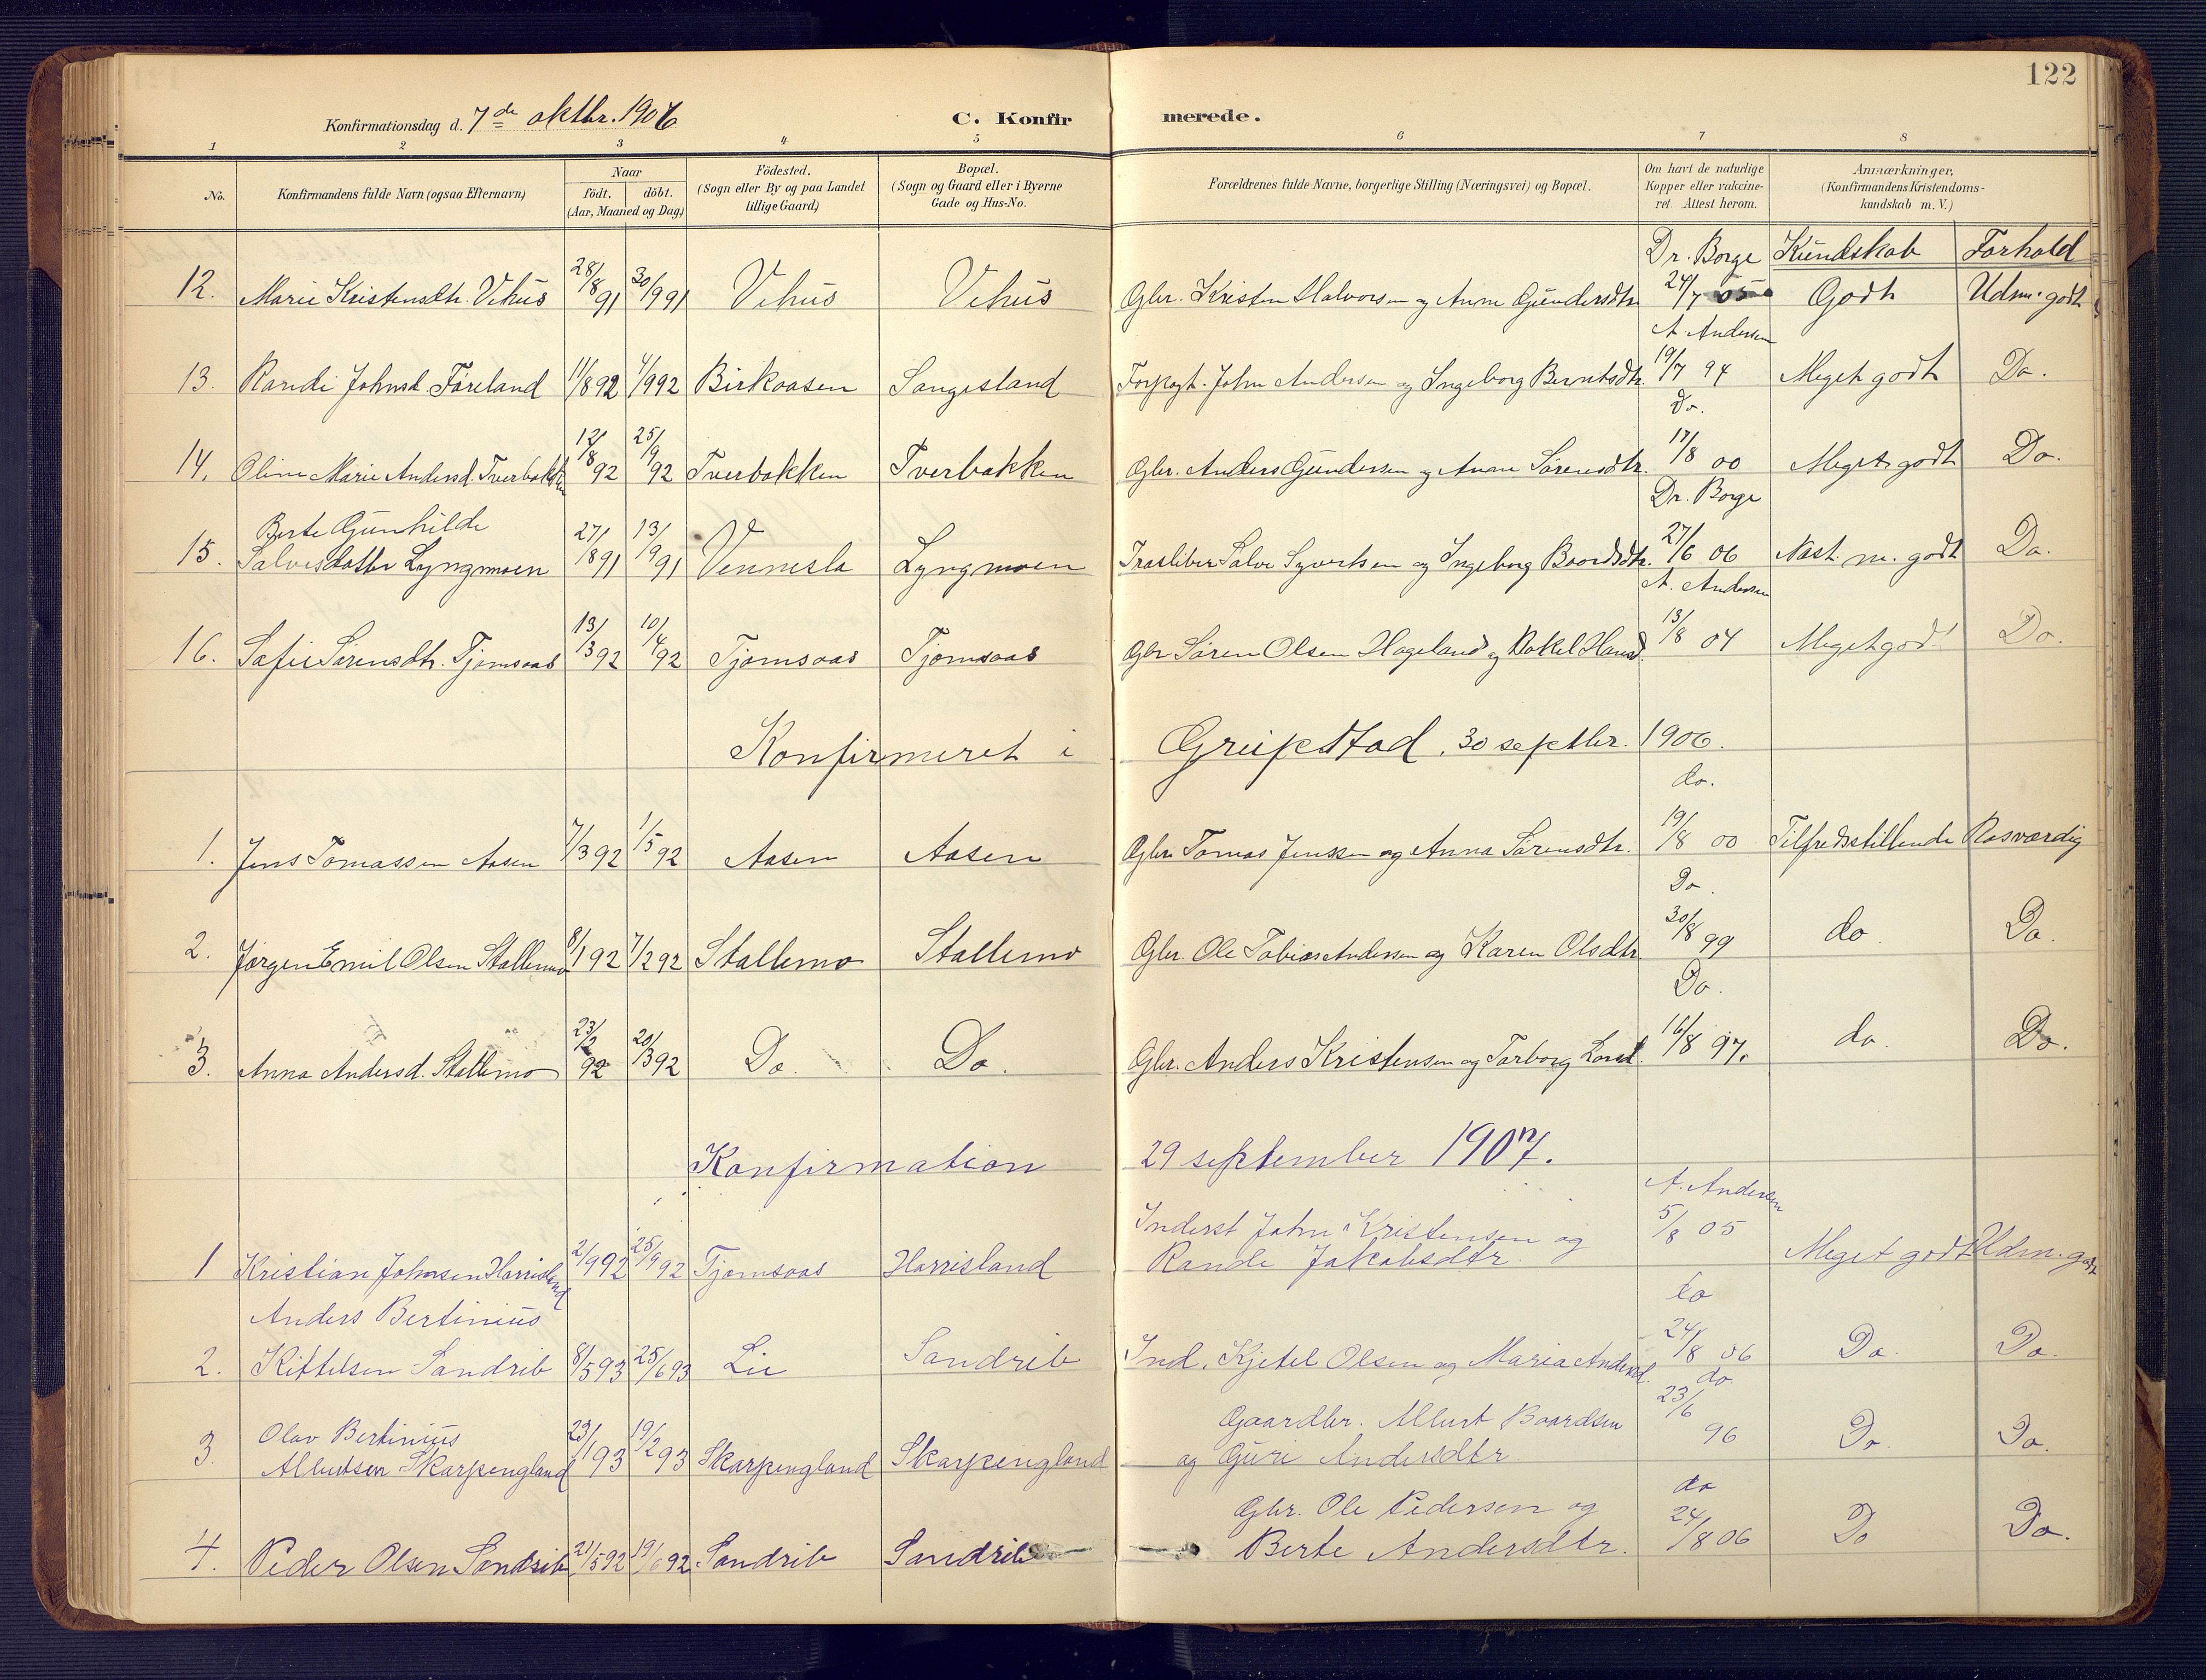 122
Konfirmationsdag d. 7de oktbr. 1906
C. Konfirmerede.
1 2 3 4 5 6 7 8
No.
Konfirmandens fulde Navn (ogsaa Efternavn)
Naar
födt. döbt.
(Aar, Maaned og Dag)
Födested.
(Sogn eller By og paa Landet
tillige Gaard)
Bopæl.
(Sogn og Gaard eller i Byerne
Gade og Hus-No.
Forældrenes fulde Navne, borgerlige Stilling (Næringsvei) og Bopæl.
Om havt de naturlige
Kopper eller vakcine-
ret. Attest herom.
Anmærkninger,
(Konfirmandens Kristendoms-
kundskab m. V.)
Dr. Borge Kundskab Forhold
12. Marie Kristensdtr. Vehus 28/8 91 30/9 91 Vehus Vehus Gbr. Kristen Halvorsen og Anne Gundersdtr 24/7 05 Godt Udm. godt
A. Andersen
13. Randi Johnsd. Föreland 11/8 92 4/9 92 Birkaasen Sangesland Forpagt. John Andersen og Ingeborg Berntsdtr. 19/7 94 Meget godt Do.
do.
14. Oline Marie Andersd. Tverbakken 12/8 92 25/9 92 Tverbakken Tverbakken Gbr. Anders Gundersen og Anne Sörensdtr. 17/8 00 Meget godt Do.
Dr. Borge
Berte Gunhilde
15. Salvesdatter Lyngmoen 27/8 91 13/9 91 Vennesla Lyngmoen Træsliber Salve Syvertsen og Ingeborg Baardsdtr. 27/6 06 Næst. m. godt Do.
A. Andersen
16. Sofie Sörensdtr. Tjomsaas 13/3 92 10/4 92 Tjomsaas Tjomsaas Gbr Sören Olsen Hageland og Rakel Hansd. 13/8 04 Meget godt Do.
Konfirmeret i Greipstad, 30 septbr. 1906.
do.
1. Jens Tomassen Aasen 7/3 92 1/5 92 Aasen Aasen Gbr. Tomas Jenssen og Anna Sörensdtr. 19/8 00 Tilfredsstillende Rosværdig
Do.
2. Jörgen Emil Olsen Stallemo 8/1 92 7/2 92 Stallemo Stallemo Gbr. Ole Tobias Andersen og Karen Olsdtr 30/8 99 do Do.
Do.
3. Anna Andersd. Stallemo 23/2 92 20/3 92 Do. Do. Gbr. Anders Kristensen og Torborg 16/8 97. do. Do.
Konfirmation 29 september 1907.
A. Andersen
1 Kristian Johnsen Harrisland 2/9 92 25/9 92 Tjomsaas Harrisland Inderst John Kristensen og
Rande Jakobsdtr. 5/8 05 Meget godt Udm. godt
do
Anders Bertinius
2. Kittelsen Sandrib 8/5 93 25/6 93 Lie Sandrib Ind. Kjetel Olsen og Maria Andersd. 24/8 06 Do. Do.
do.
Olav Bertinius
3. Albertsen Skarpengland 23/1 93 19/2 93 Skarpengland Skarpengland Gaardbr. Albert Baardsen
og Guri Andersdtr 23/6 96 Do. Do.
do
4. Peder Olsen Sandrib 21/5 92 19/6 92 Sandrib Sandrib Gbr. Ole Pedersen og
Berte Andersdtr. 24/8 06 Do Do.